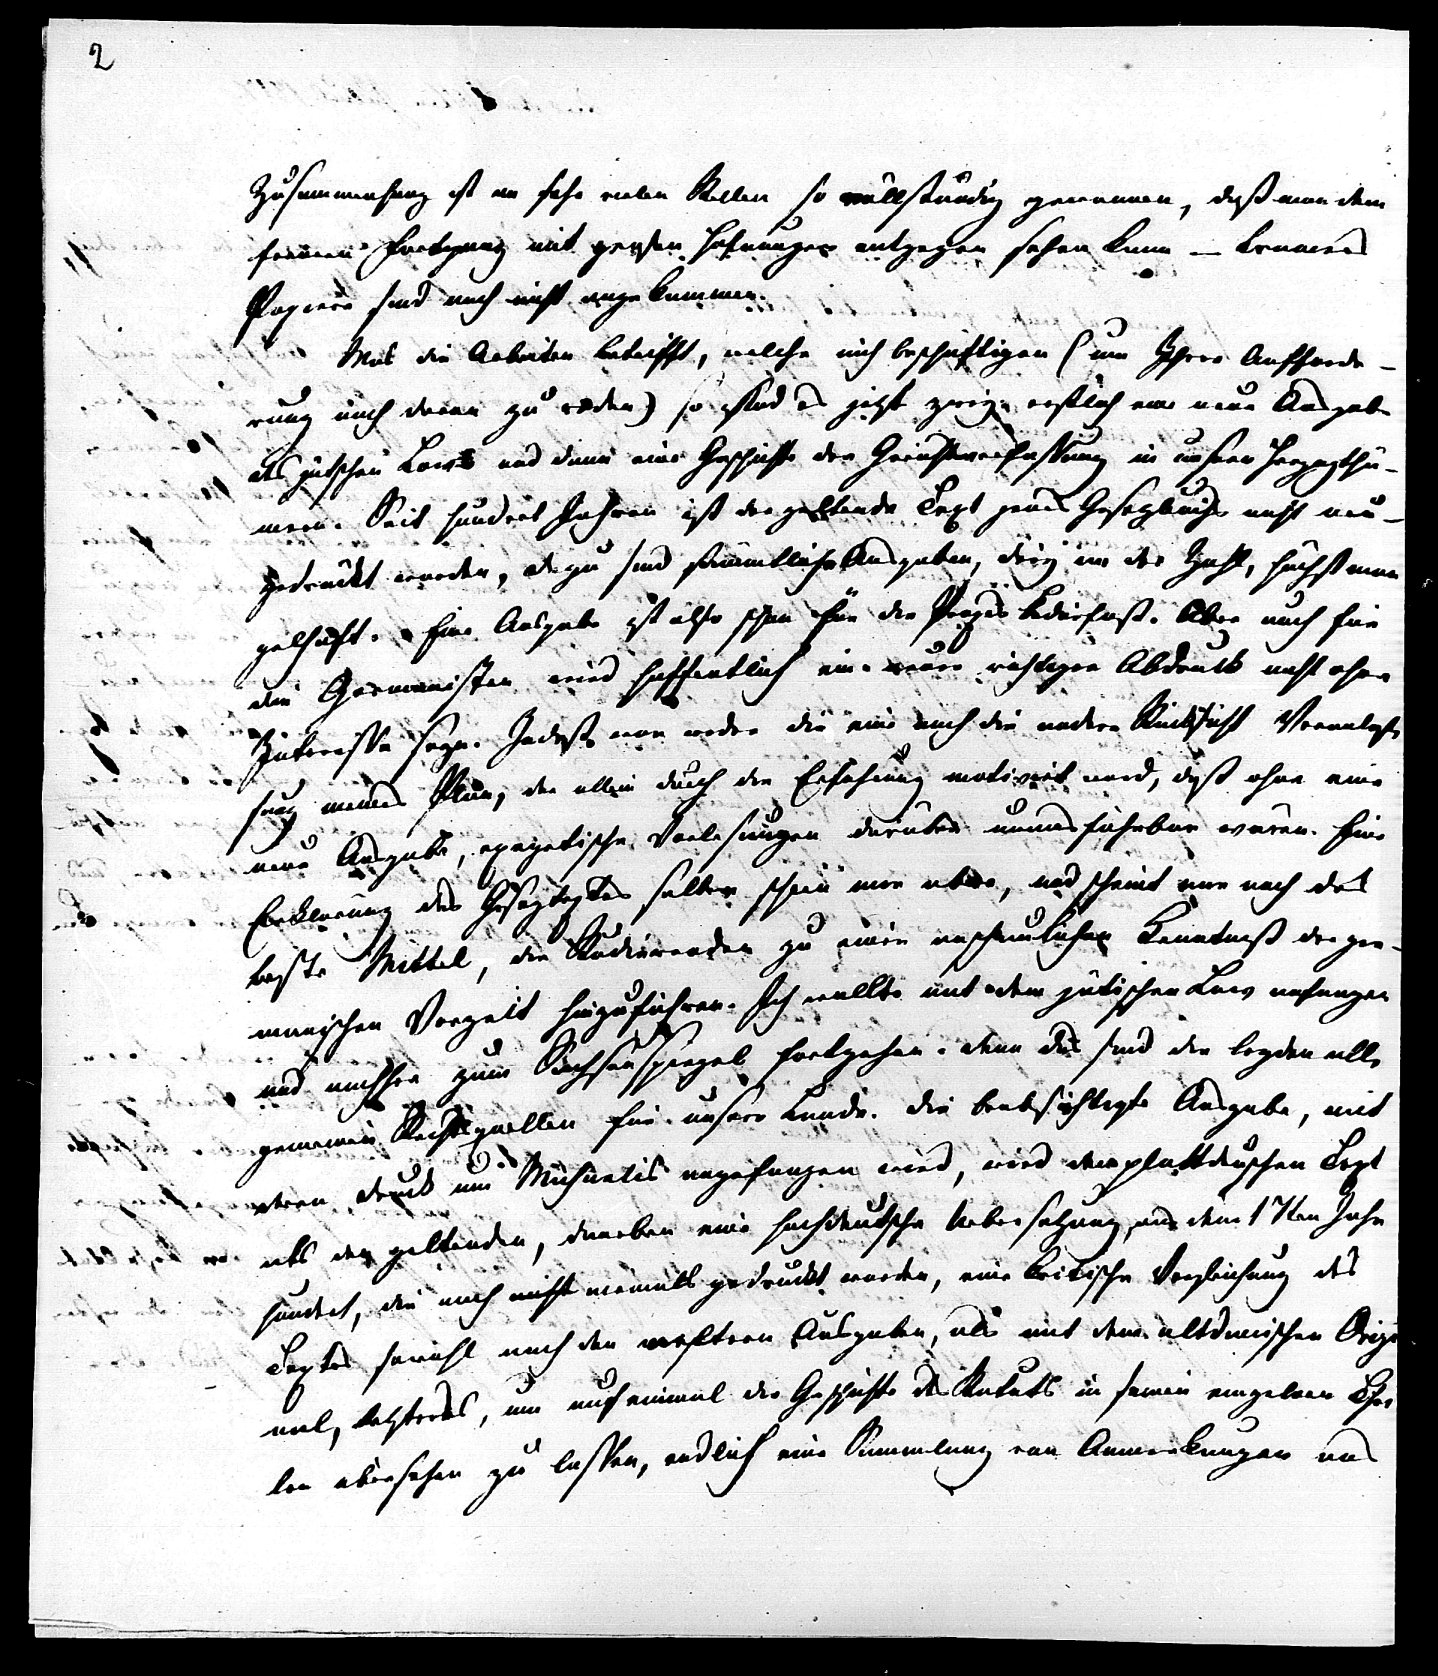 2
Zusammenhang ist an sehr vielen Stellen so vollständig gewonnen, daß man dem
ferneren Fortgang mit großen Hofnungen entgegen sehen kann — Cramers
Papiere sind noch nicht angekommen.
Was die Arbeiten betrifft, welche mich beschäftigen (um Ihrer Aufforde-
rung nach davon zu reden) so sind es jetzt zwey. erstlich eine neue Ausgabe
des jütschen Lows und dann eine Geschichte der Gerichtsverfassung in unseren Herzogthü-
mern. Seit hundert Jahren ist der geltende Text jenes Gesetzbuchs nicht neu-
gedruckt worden, dazu sind sämmtliche Ausgaben, drey an der Zahl, höchst man
gelhaft. Eine Ausgabe ist also schon für die Praxis Bedürfniß. Aber auch für
den Germanisten wird hoffentlich ein neuer richtiger Abdruck nicht ohne
Interesse seyn. Indeß war weder die eine noch die andere Rücksicht Veranlas-
sung meines Plans, der allein durch die Erfahrung motivirt ward, daß ohne eine
neue Ausgabe, exegetische Vorlesungen darüber unausführbar wären. Eine
Erklärung des Gesetztextes selber schien mir aber, und scheint mir noch das
beste Mittel, die Studierenden zu einer anschaulichen Kenntniß der ger-
manischen Vorzeit hinzuführen. Ich wollte mit dem jütischen Low anfangen
und nachher zum Sachsenspiegel fortgehen. denn das sind die beyden all-
gemeinen Rechtsquellen für unsere Lande. Die beabsichtigte Ausgabe, mit
deren Druck um Michaelis angefangen wird, wird den plattdeutschen Text
als den geltenden, daneben eine hochdeutsche Uebersetzung aus dem 17ten Jahr
hundert, die noch nicht niemals gedruckt worden, eine kritische Vergleichung des
Textes sowohl nach den ältern Ausgaben, als mit dem altdänischen Origi
nal, letzteres, um auf einmal die Geschichte des Statuts in seinen einzelnen Thei
len übersehen zu lassen, endlich eine Sammlung von Anmerkungen aus